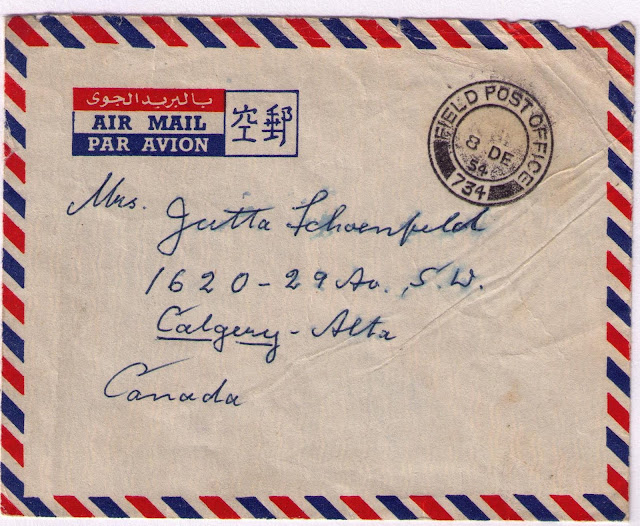 بالبريد الجوى
AIR MAIL
PAR AVION
空郵
FIELD POST OFFICE
8 DE
54
734
Mrs. Jutta Schoenfeld
1620-29 Av. S.W.
Calgery-Alta
Canada